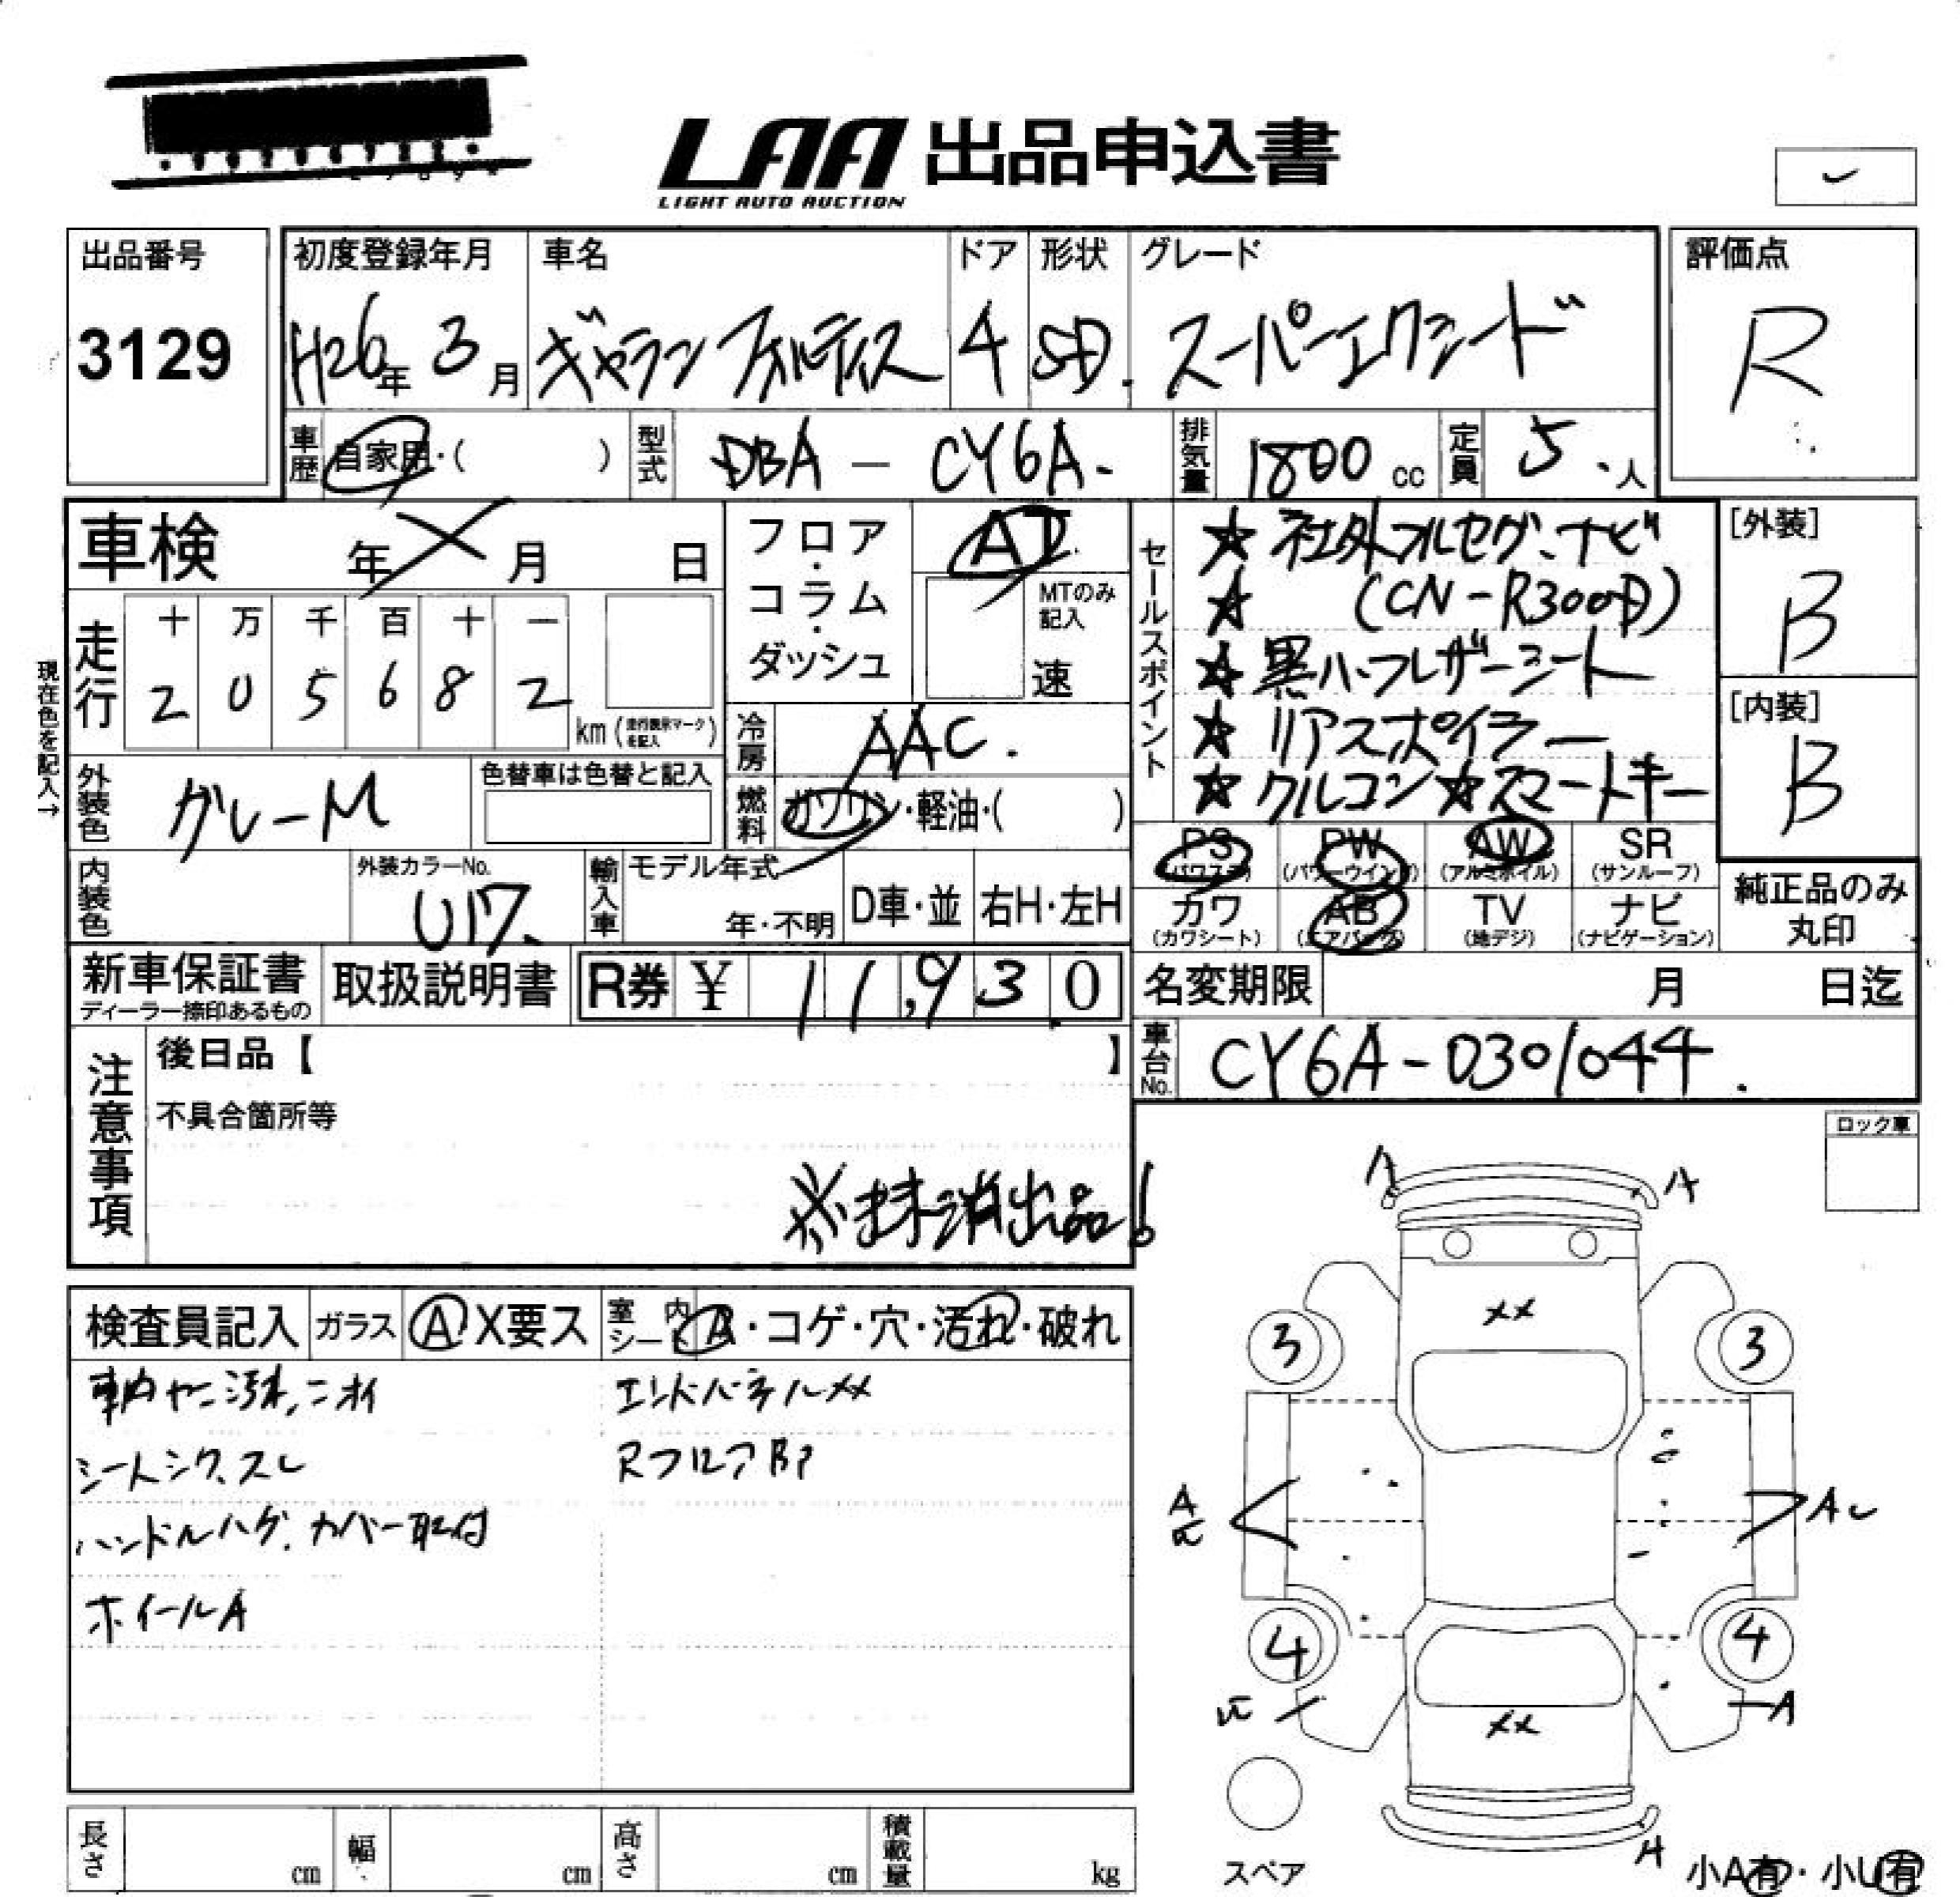 LAA 出品申込書
LIGHT AUTO AUCTION
出品番号
3129
初度登録年月
H26年 3月
車名
ギャランフォルティス
ドア
4
形状
SD.
グレード
スーパーエクシード
評価点
R
車歴 自家用・( )
型式 DBA - CY6A-
排気量 1800 cc
定員 5.人
車検 年 月 日
フロア・コラム・ダッシュ
AT
MTのみ記入
速
セールスポイント
★社外フルセグ、ナビ
★ (CN-R300D)
★黒ハーフレザーシート
★リアスポイラー
★クルコン★スマートキー
[外装]
B
[内装]
B
現在色を記入→
走行
十 万 千 百 十 一
2 0 5 6 8 2
km (走行表示マークを記入)
冷房 AAC.
外装色 グレーM
色替車は色替と記入
燃料 ガソリン・軽油・( )
内装色
外装カラーNo.
U17.
輸入車 モデル年式
年・不明
D車・並
右H・左H
PS (パワステ)
PW (パワーウインド)
AW (アルミホイル)
SR (サンルーフ)
カワ (カワシート)
AB (エアバッグ)
TV (地デジ)
ナビ (ナビゲーション)
純正品のみ
丸印
新車保証書
ディーラー捺印あるもの
取扱説明書
R券 ¥ 11,930
名変期限 月 日迄
注意事項
後日品【 】
不具合箇所等
※抹消出品!
車台No. CY6A-0301044.
ロック車
検査員記入
ガラス A X要ス
室内シート A・コゲ・穴・汚れ・破れ
車内ヤニ汚れ、ニオイ
シートシワ、スレ
ハンドルハゲ、カバー取付
ホイールA
エンドパネルXX
RフロアBP
A A
XX
3 3
A
A
4 4
A
XX
A
スペア
小A有・小U有
長さ cm
幅 cm
高さ cm
積載量 kg